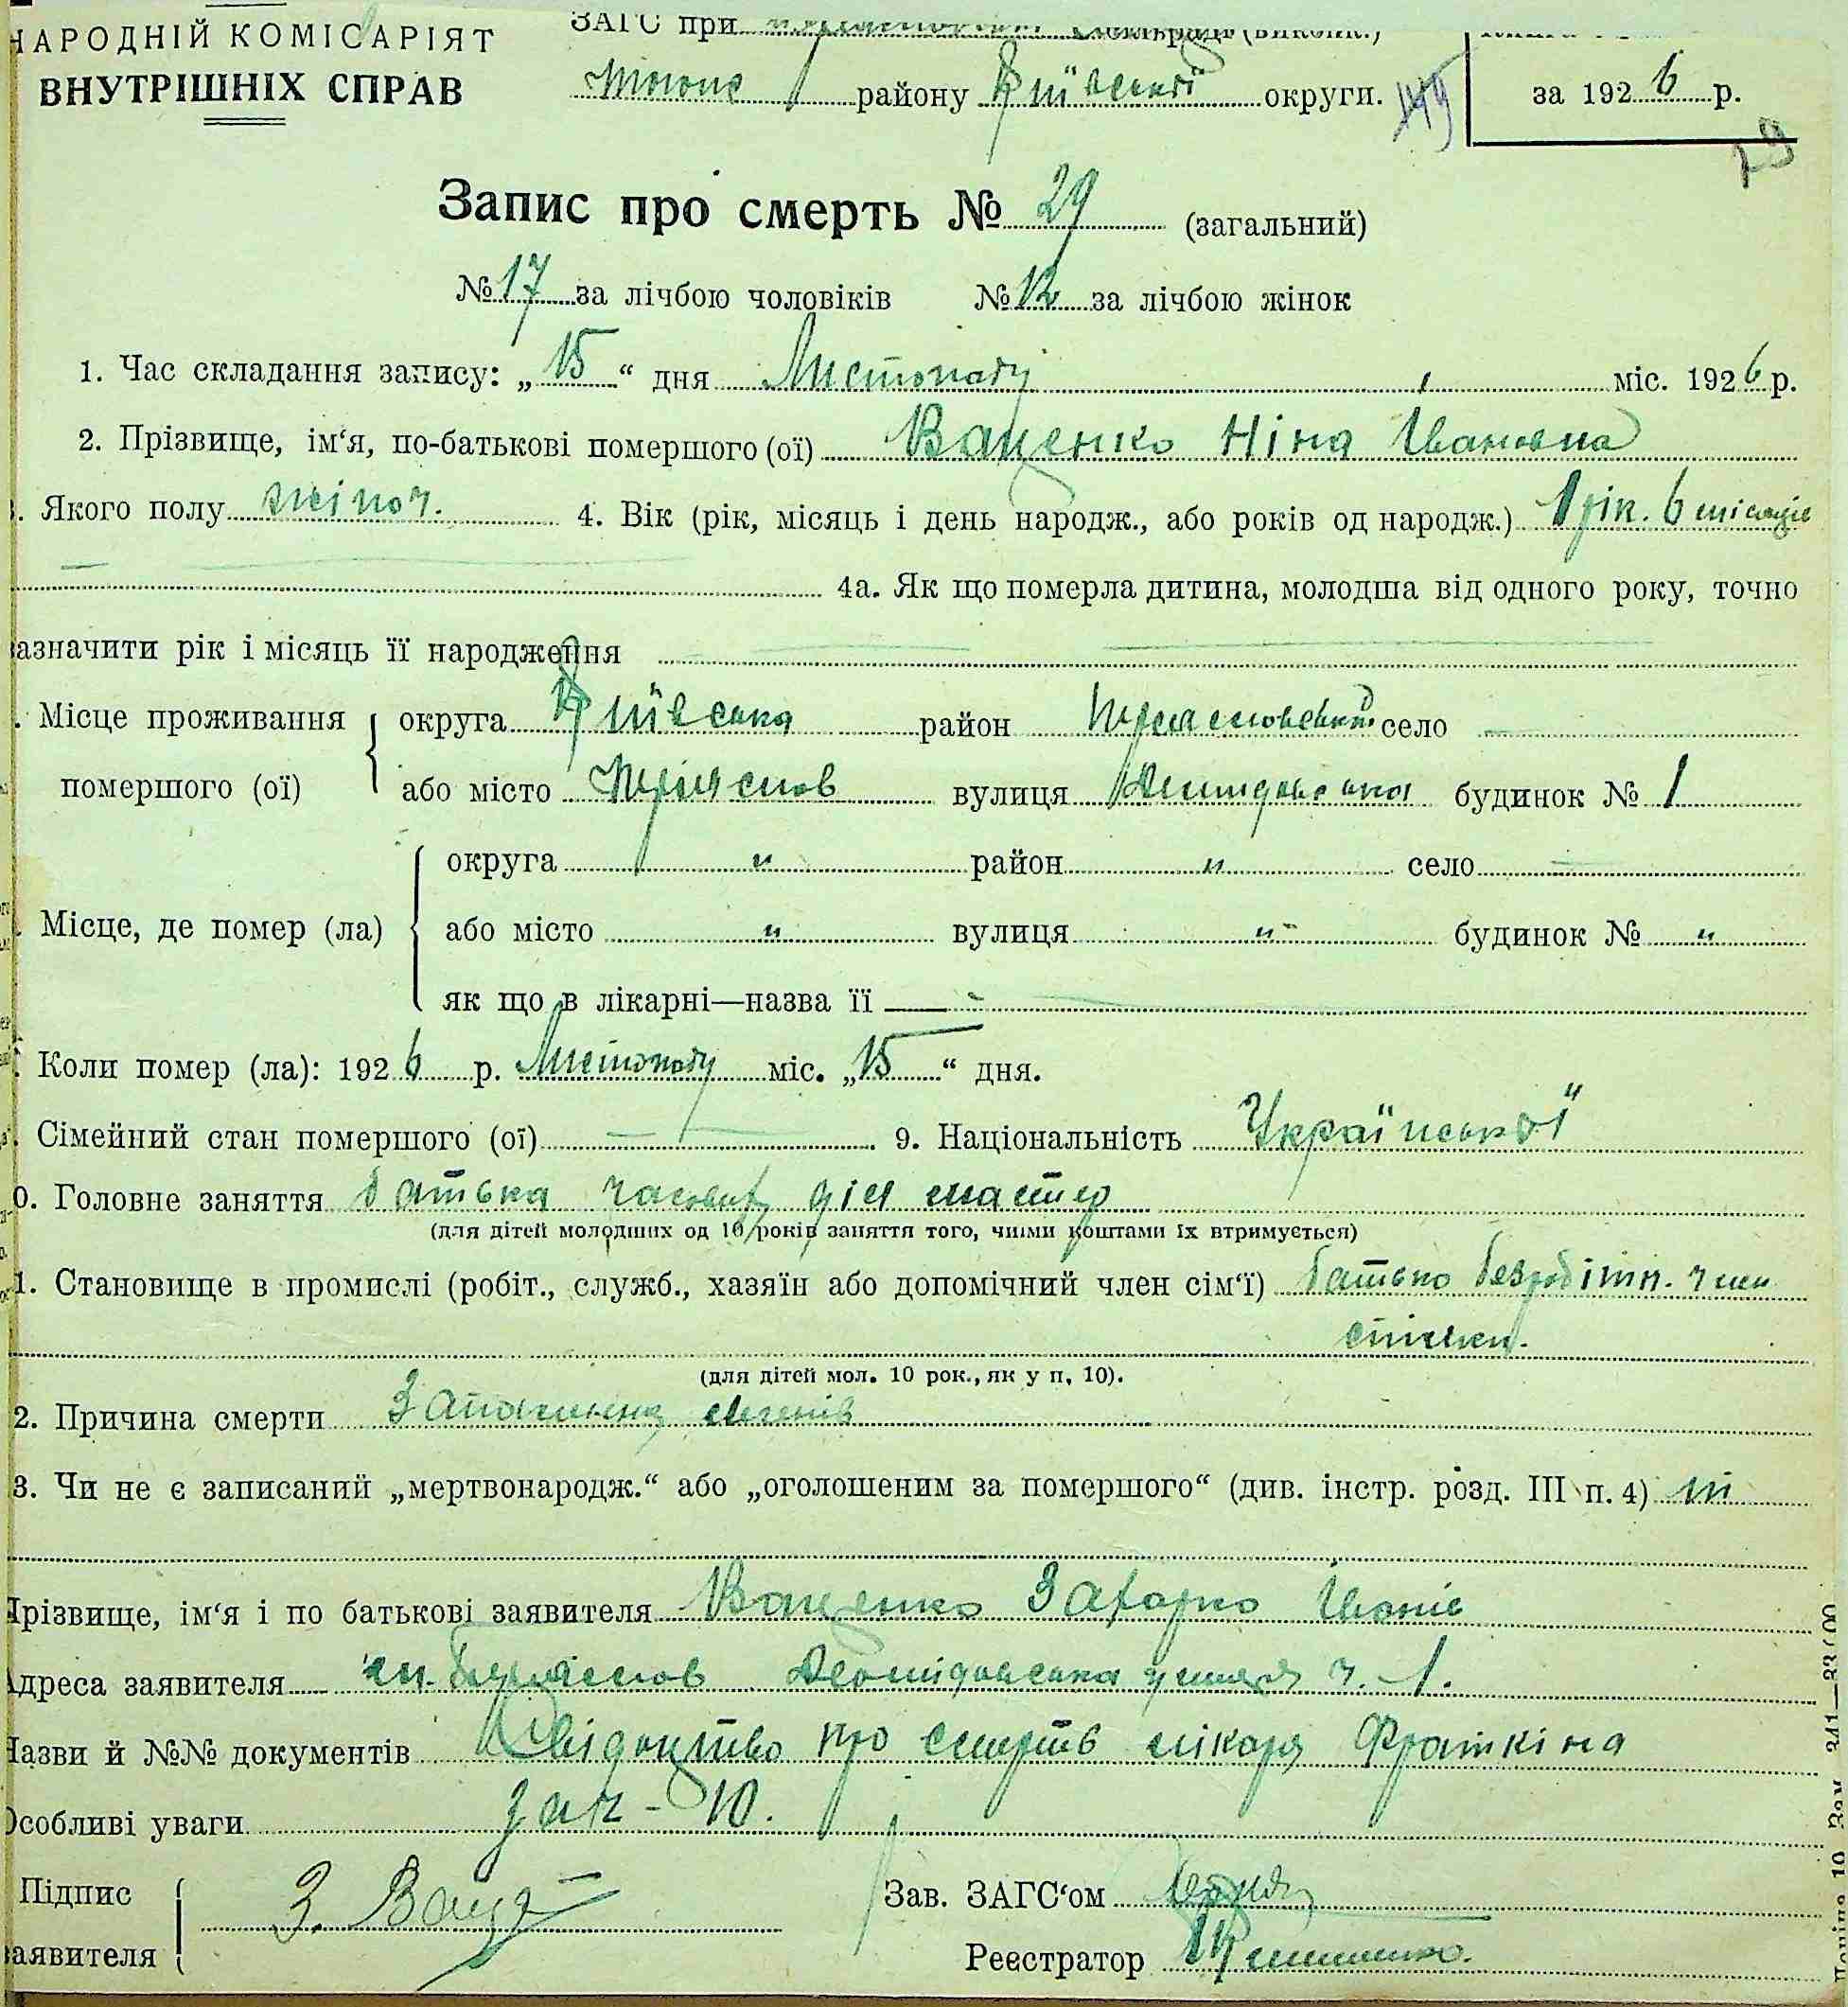 НАРОДНІЙ КОМІСАРІЯТ
ВНУТРІШНІХ СПРАВ
ЗАГС при
району Київської округи.
149
за 1926 р.
29
Запис про смерть № 29 (загальний)
№ 17 за лічбою чоловіків № 12 за лічбою жінок
1. Час складання запису: „15“ дня Листопаду міс. 1926 р.
2. Прізвище, ім‘я, по-батькові помершого (ої) Ващенко Ніна Івановна
. Якого полу жіноч. 4. Вік (рік, місяць і день народж., або років од народж.) 1 рік. 6 місяців
4а. Як що померла дитина, молодша від одного року, точно
азначити рік і місяць її народження
. Місце проживання помершого (ої)
округа Київська район село
або місто вулиця будинок № 1
Місце, де помер (ла)
округа " район " село
або місто " вулиця " будинок № "
як що в лікарні—назва її —
Коли помер (ла): 1926 р. Листопаду міс. „15“ дня.
. Сімейний стан помершого (ої) — 9. Національність Української
0. Головне заняття батька
(для дітей молодших од 10 років заняття того, чиїми коштами їх втримується)
1. Становище в промислі (робіт., служб., хазяїн або допомічний член сім‘ї) батько безробітн. член
спілки.
(для дітей мол. 10 рок., як у п. 10).
2. Причина смерти Запалення легенів
3. Чи не є записаний „мертвонародж.“ або „оголошеним за помершого“ (див. інстр. розд. III п. 4) ні
Прізвище, ім‘я і по батькові заявителя Ващенко Захарко Іванів
Адреса заявителя ч. 1.
Назви й №№ документів Свідоцтво про смерть лікаря Фраткіна
за ч - 10.
Особливі уваги
Підпис заявителя З. Ващ
Зав. ЗАГС‘ом
Реєстратор